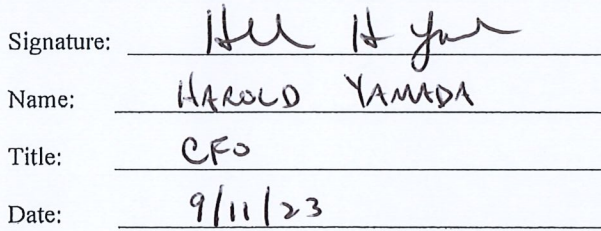 Signature: H H Ya
Name: HAROLD YAMADA
Title: CFO
Date: 9/11/23